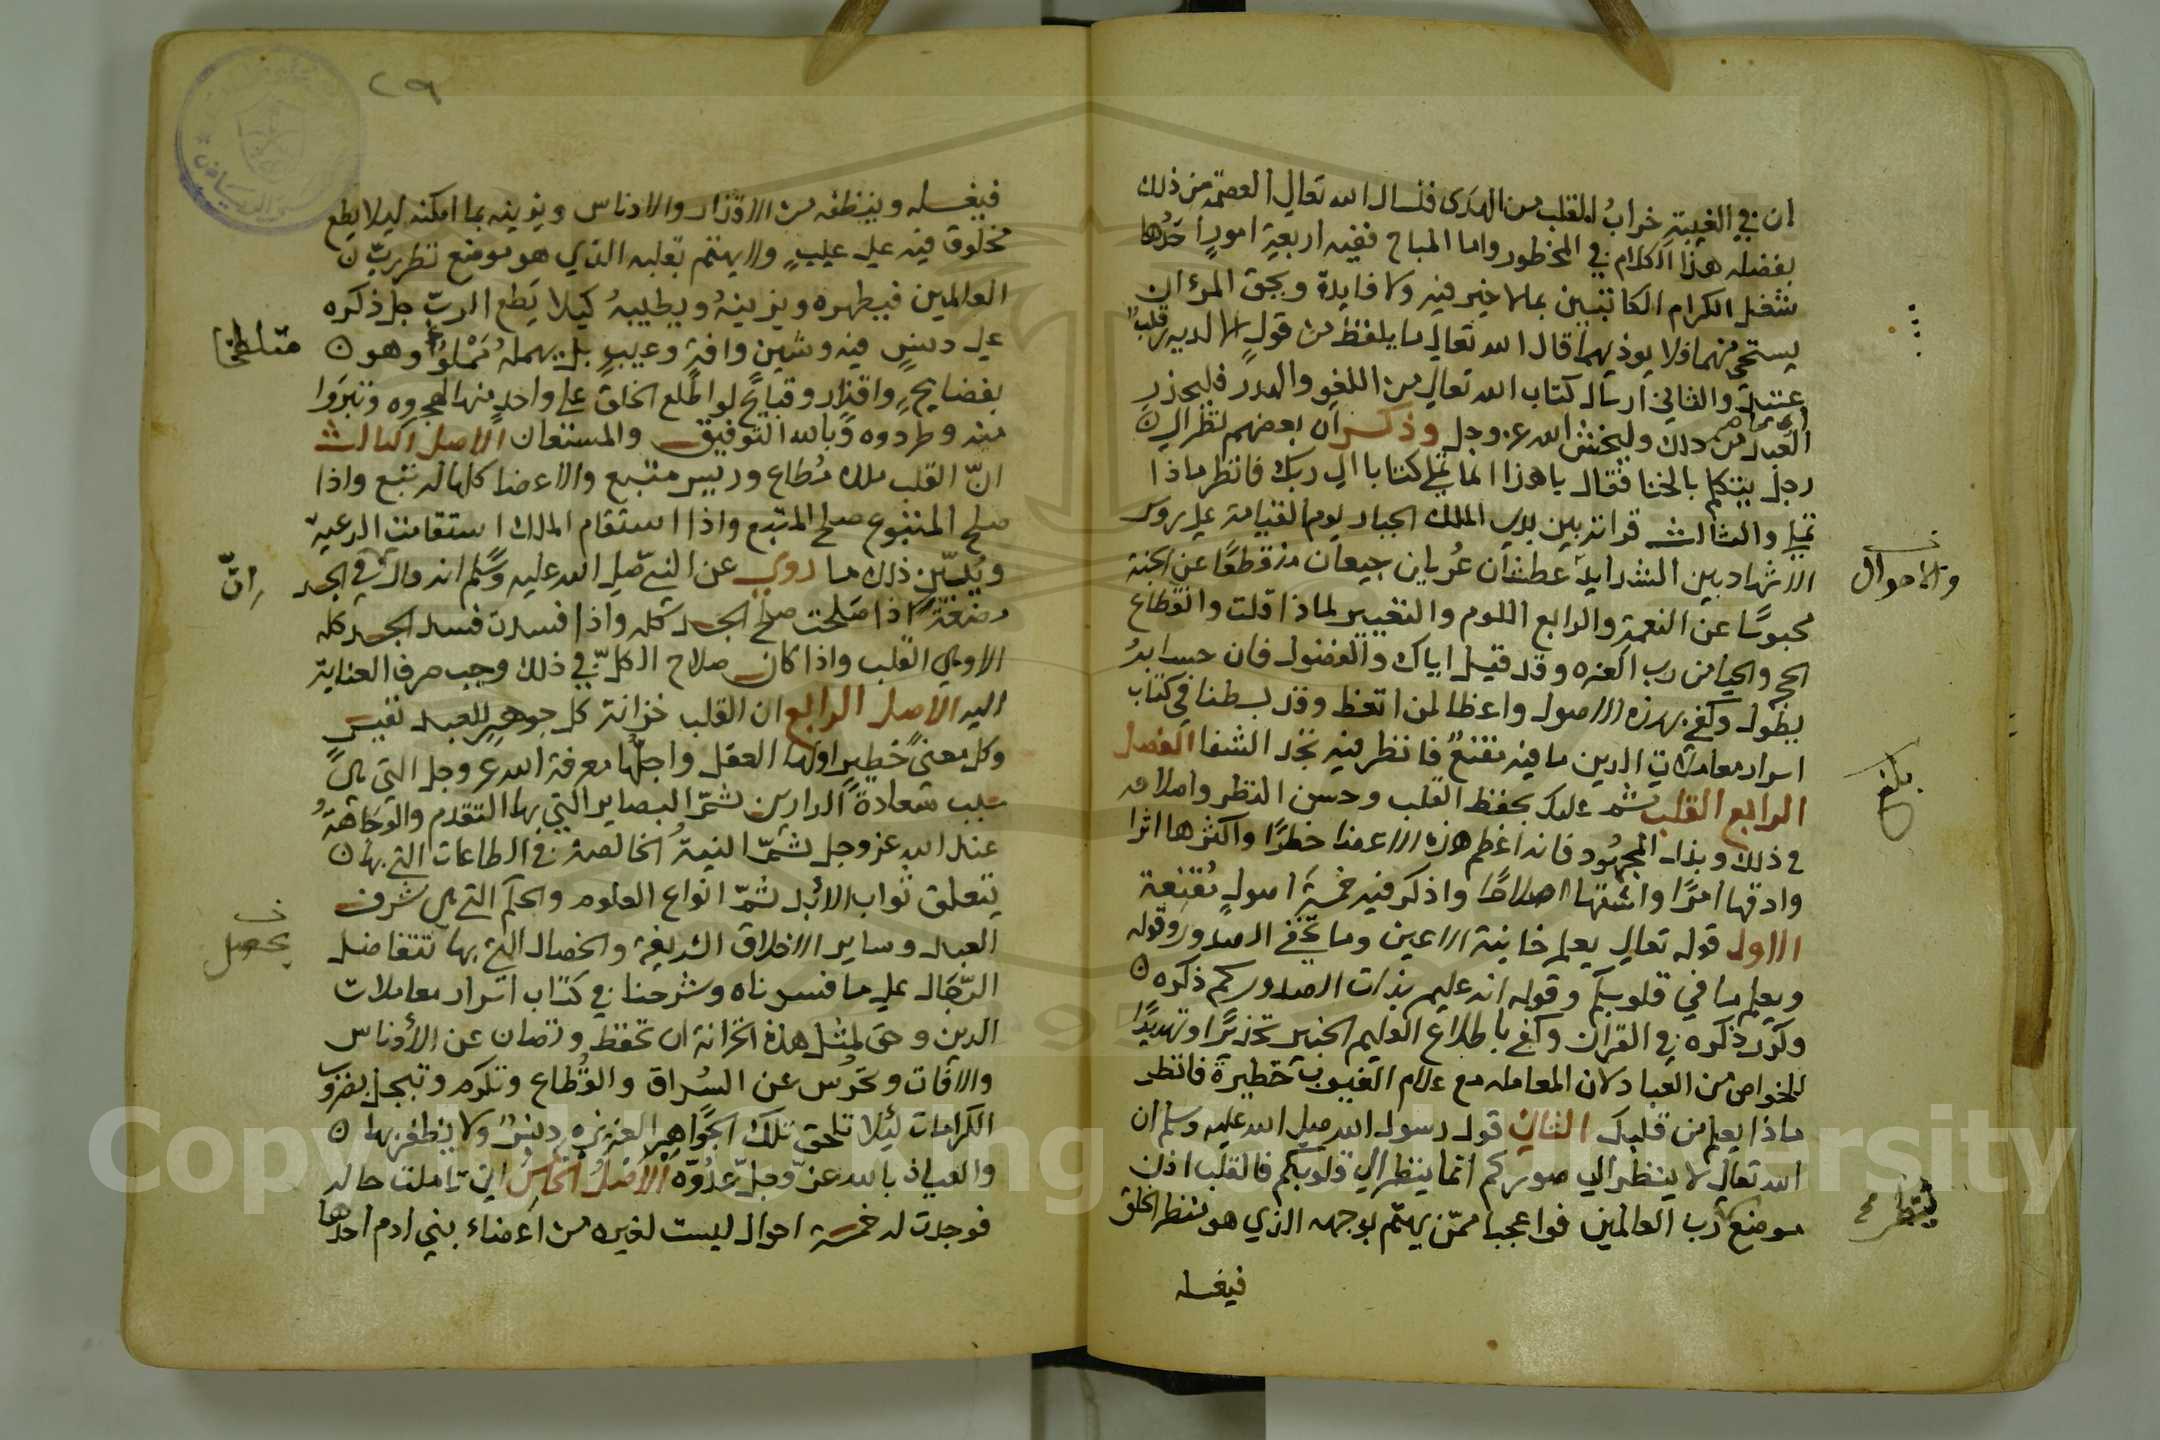 ان في الغيبة خراب القلب من الهدى فنسال الله تعالى العصمة من ذلك
بفضله هذا الكلام في المحظور واما المباح ففيه اربعة امور احدها
شغل الكرام الكاتبين بما لا خير فيه ولا فايدة وبحق المرء ان
يستحي منهما فلا يوذيهما قال الله تعالى ما يلفظ من قول الا لديه رقيب
عتيد والثاني ارسال كتاب الله تعالى من اللغو والهدر فليحذر
العبد من ذلك وليخش الله عز وجل وذكر ان بعضهم نظر الى
رجل يتكلم بالخنا فقال يا هذا انما تملي كتابا الى ربك فانظر ماذا
تملي والثالث قراته بين يدي الملك الجبار يوم القيامة على روس
الاشهاد بين الشدايد عطشان عريان جيعان منقطعا عن الجنة
والاهوال
محبوسا عن النعمة والرابع اللوم والتعيير لماذا قلت وانقطاع
الحجج والحيا من رب العزه وقد قيل اياك والفضول فان حسابه
يطول وكفى بهذه الاصول واعظا لمن اتعظ وقد بسطنا في كتاب
اسرار معاملات الدين ما فيه مقنع فانظر فيه تجد الشفا الفصل
بلغ
الرابع القلب ثم عليك بحفظ القلب وحسن النظر واصلاحه
في ذلك وبذل المجهود فانه اعظم هذه الاعضا خطرا واكثرها اثرا
وادقها امرا واشقها اصلاحا واذكر فيه خمسة اصول مقنعة
الاول قوله تعالى يعلم خاينة الاعين وما تخفي الصدور وقوله
ويعلم ما في قلوبكم وقوله انه عليم بذات الصدور كم ذكره
وكرر ذكره في القران وكفى باطلاع العليم الخبير تحذيرا وتهديدا
للخواص من العباد لان المعامله مع علام الغيوب خطيرة فانظر
ماذا يعلم من قلبك الثاني قول رسول الله صلى الله عليه وسلم ان
الله تعالى لا ينظر الى صوركم انما ينظر الى قلوبكم فالقلب اذن
موضع رب العالمين فواعجبا ممن يهتم بوجهه الذي هو منظر الخلق
فيغسله
٢٩
فيغسله وينظفه من الاقذار والادناس ويزينه بما امكنه ليلا يطلع
مخلوق فيه على عيب ولا يهتم بقلبه الذي هو موضع نظر رب
العالمين فيطهره ويزينه ويطيبه كيلا يطلع الرب جل ذكره
على دنس فيه وشين وافة وعيب بل يهمله مملوا وهو
متلطخا
بفضايح واقذار وقبايح لو اطلع الخلق على واحد منها لهجروه وتبروا
منه وطردوه وبالله التوفيق والمستعان الاصل الثالث
ان القلب ملك مطاع وريس متبع والاعضا كلها له تبع واذا
صلح المتبوع صلح المتبع واذا استقام الملك استقامت الرعية
ويبين ذلك ما روي عن النبي صلى الله عليه وسلم انه قال في الجسد
ان
مضغة اذا صلحت صلح الجسد كله واذا فسدت فسد الجسد كله
الا وهي القلب واذا كان صلاح الكل في ذلك وجب صرف العناية
اليه الاصل الرابع ان القلب خزانة كل جوهر للعبد نفيس
وكل معنى خطير اولها العقل واجلها معرفة الله عز وجل التي هي
سبب سعادة الدارين ثم البصاير التي بها التقدم والوجاهة
عند الله عز وجل ثم النية الخالصة في الطاعات التي بها
يتعلق ثواب الابد ثم انواع العلوم والحكم التي هي شرف
العبد وساير الاخلاق الشريفة والخصال التي بها تتفاضل
يحصل
الرجال على ما فسرناه وشرحنا في كتاب اسرار معاملات
الدين وحق لمثل هذه الخزانة ان تحفظ وتصان عن الادناس
والافات وتحرس عن السراق والقطاع وتكرم وتبجل بضروب
الكرامات ليلا تلحق تلك الجواهر العزيزه دنس ولا يظفر بها
والعياذ بالله عز وجل عدوه الاصل الخامس اني تاملت حاله
فوجدت له خمسة احوال ليست لغيره من اعضاء بني ادم احدها
Copyright © King Saud University